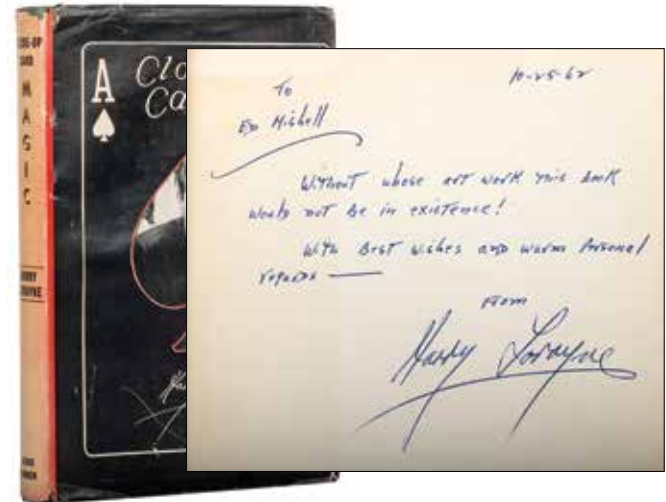 CLOSE-UP
CARD
MAGIC
HARRY
LORAYNE
A
Clo
Ca
Ha
10-25-62
To
Ed Mishell
Without whose art work this book
would not be in existence!
With Best wishes and warm Personal
regards —
From
Harry Lorayne